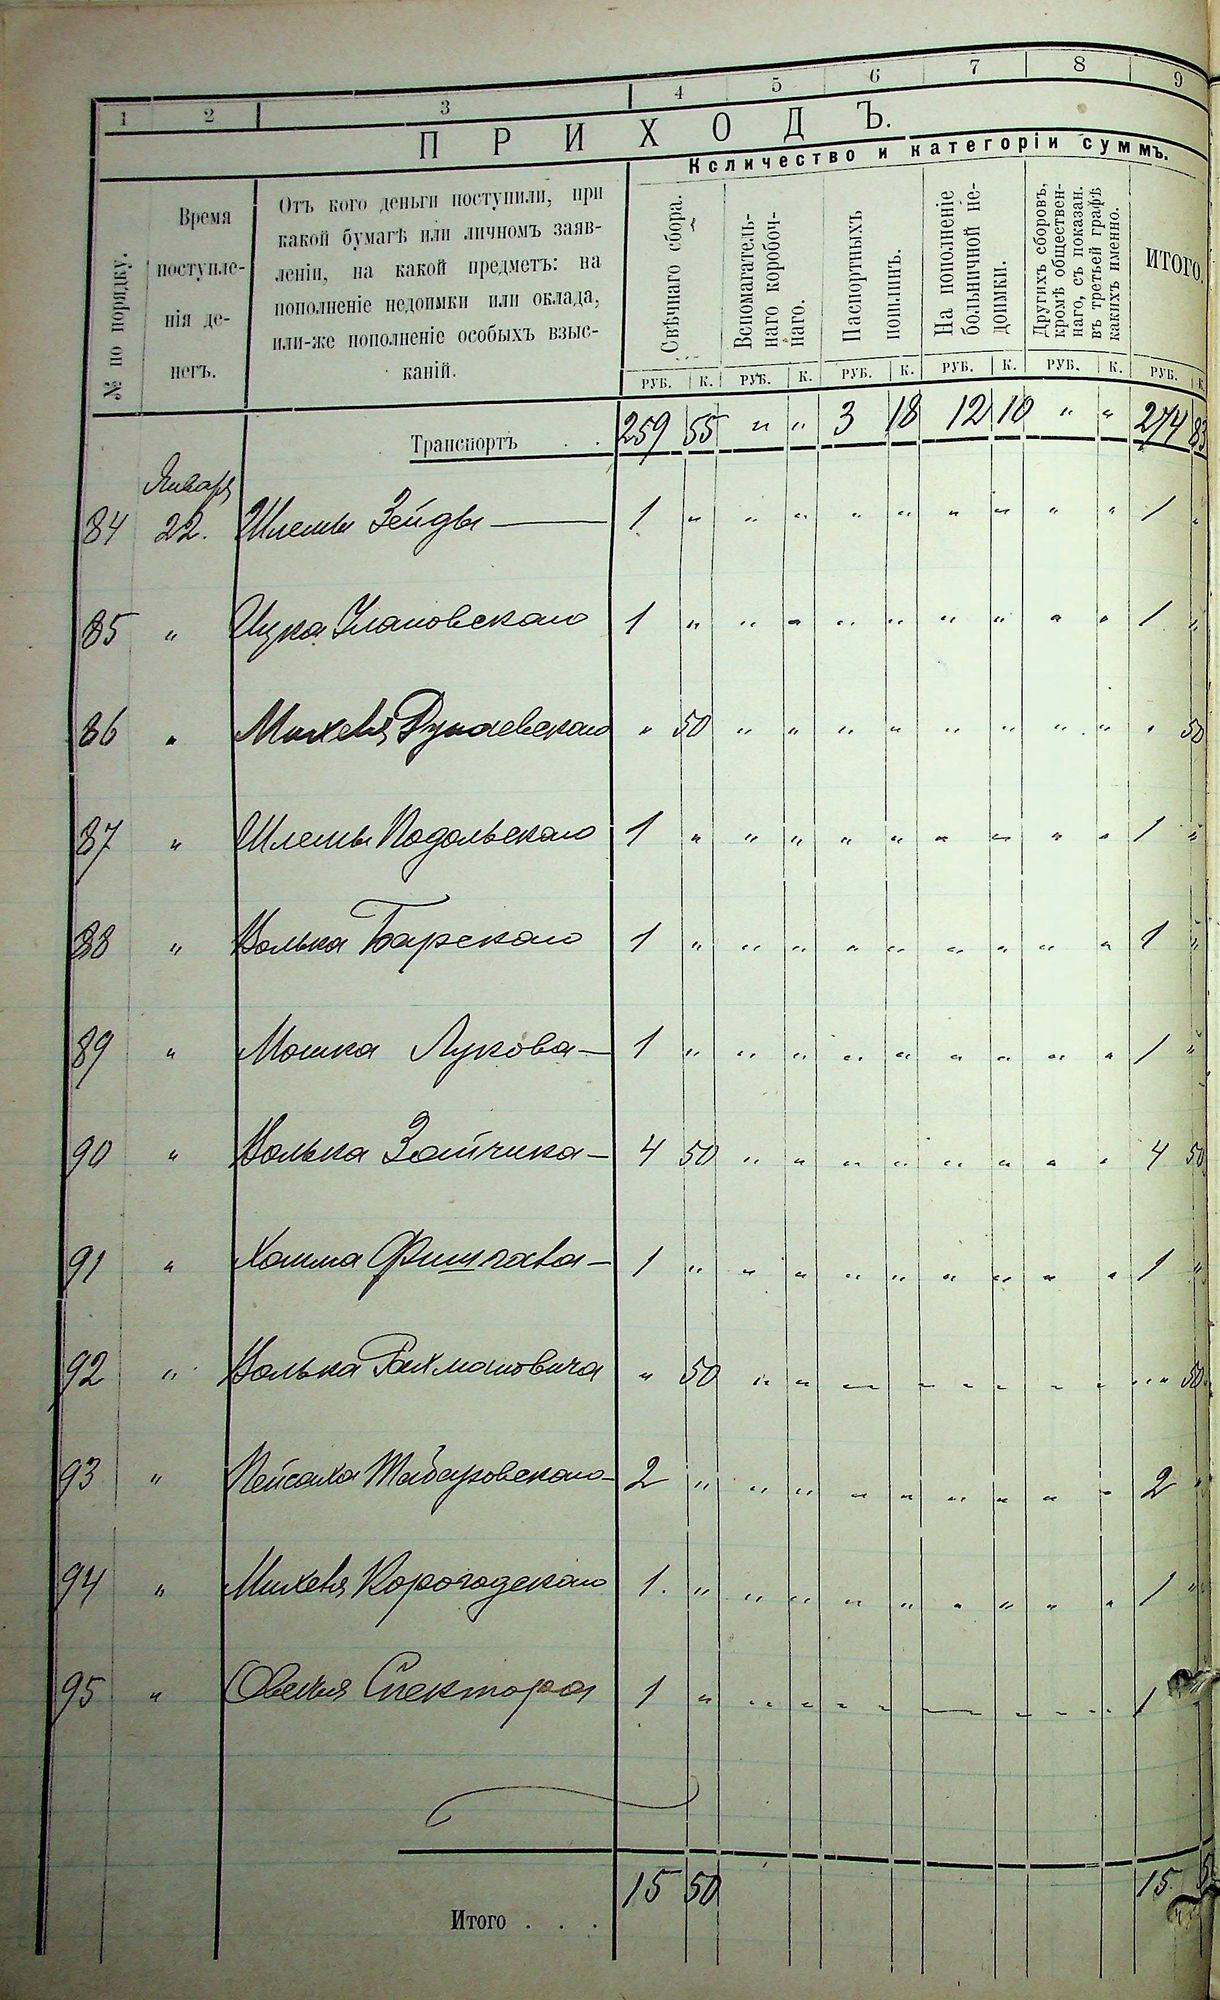 1 2 3 4 5 6 7 8 9
ПРИХОДЪ.
Количество и категоріи суммъ.
№ по порядку.
Время
поступле-
нія де-
негъ.
Отъ кого деньги поступили, при
какой бумагѣ или личномъ заяв-
леніи, на какой предметъ: на
пополненіе недоимки или оклада,
или-же пополненіе особыхъ взыс-
каній.
Свѣчнаго сбора.
Вспомагатель-
наго коробоч-
наго.
Паспортныхъ
пошлинъ.
На пополненіе
больничной не-
доимки.
Другихъ сборовъ,
кромѣ обществен-
наго, съ показан.
въ третьей графѣ
какихъ именно.
ИТОГО.
РУБ. К. РУБ. К. РУБ. К. РУБ. К. РУБ. К. РУБ. К.
Транспортъ . . 259 55 " " 3 18 12 10 " " 274 83
Января
84 22. Шлемы Зейды — 1 " " " " " " " " " 1 "
85 " Ицка Улановскаго 1 " " " " " " " " " 1 "
86 " Михеля Дунаевскаго " 50 " " " " " " " " " 50
87 " Шлемы Подольскаго 1 " " " " " " " " " 1 "
88 " Волька Барскаго 1 " " " " " " " " " 1 "
89 " Мошка Лукова — 1 " " " " " " " " " 1 "
90 " Волька Зайчика — 4 50 " " " " " " " " 4 50
91 " Хаима — 1 " " " " " " " " " 1 "
92 " Волька Рахмановича " 50 " " " " " " " " " 50
93 " Пейсаха — 2 " " " " " " " " " 2 "
94 " Михеля Корогодскаго 1. " " " " " " " " " 1 "
95 " Овсея Спектора 1 " " " " " " " " " 1
Итого . . . 15 50 15